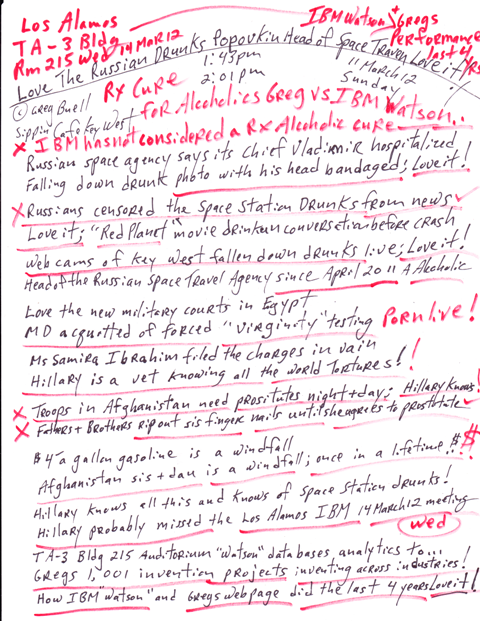 Los Alamos
TA-3 Bldg
Rm 215 Wed 14 MAR 12
IBM Watson & Gregs
Performance
last 4 yrs
11 March 12
Sunday
Love The Russian Drunks Popovkin Head of Space Travel Love it!
1:43pm
2:01pm
© Greg Buell
Sippin Cafe Key West
Rx Cure
for Alcoholics Greg vs IBM Watson..
X IBM has not considered a Rx Alcoholic cure
Russian space agency says its chief Vladimir hospitalized
Falling down drunk photo with his head bandaged; Love it!
X Russians censored the Space Station Drunks from news
Love it; "Red Planet" movie drinken conversation before crash
Web cams of Key West fallen down drunks live; Love it!
Head of the Russian Space Travel Agency since April 2011 A Akoholic
Love the new military courts in Egypt
MD acquotted of forced "virginity" testing Porn live!
Ms Samira Ibrahim filed the charges in vain
Hillary is a vet knowing all the world Tortures!!
X Troops in Afghanistan need prositutes night + day; Hillary Knows!
X Fathers + Brothers rip out sis finger nails until she agries to prostitute
$4- a gallon gasoline is a windfall
Afghanistan sis + dau is a windfall; once in a lifetime $$$
Hillary knows all this and knows of Space Station drunks!
Hillary probably missed the Los Alamos IBM 14 March 12 meeting
Wed
TA-3 Bldg 215 Auditorium "Watson" databases analytics to...
Gregs 1,001 invention projects inventing across industries!
How IBM "Watson" and Gregs webpage did the last 4 years Love it!